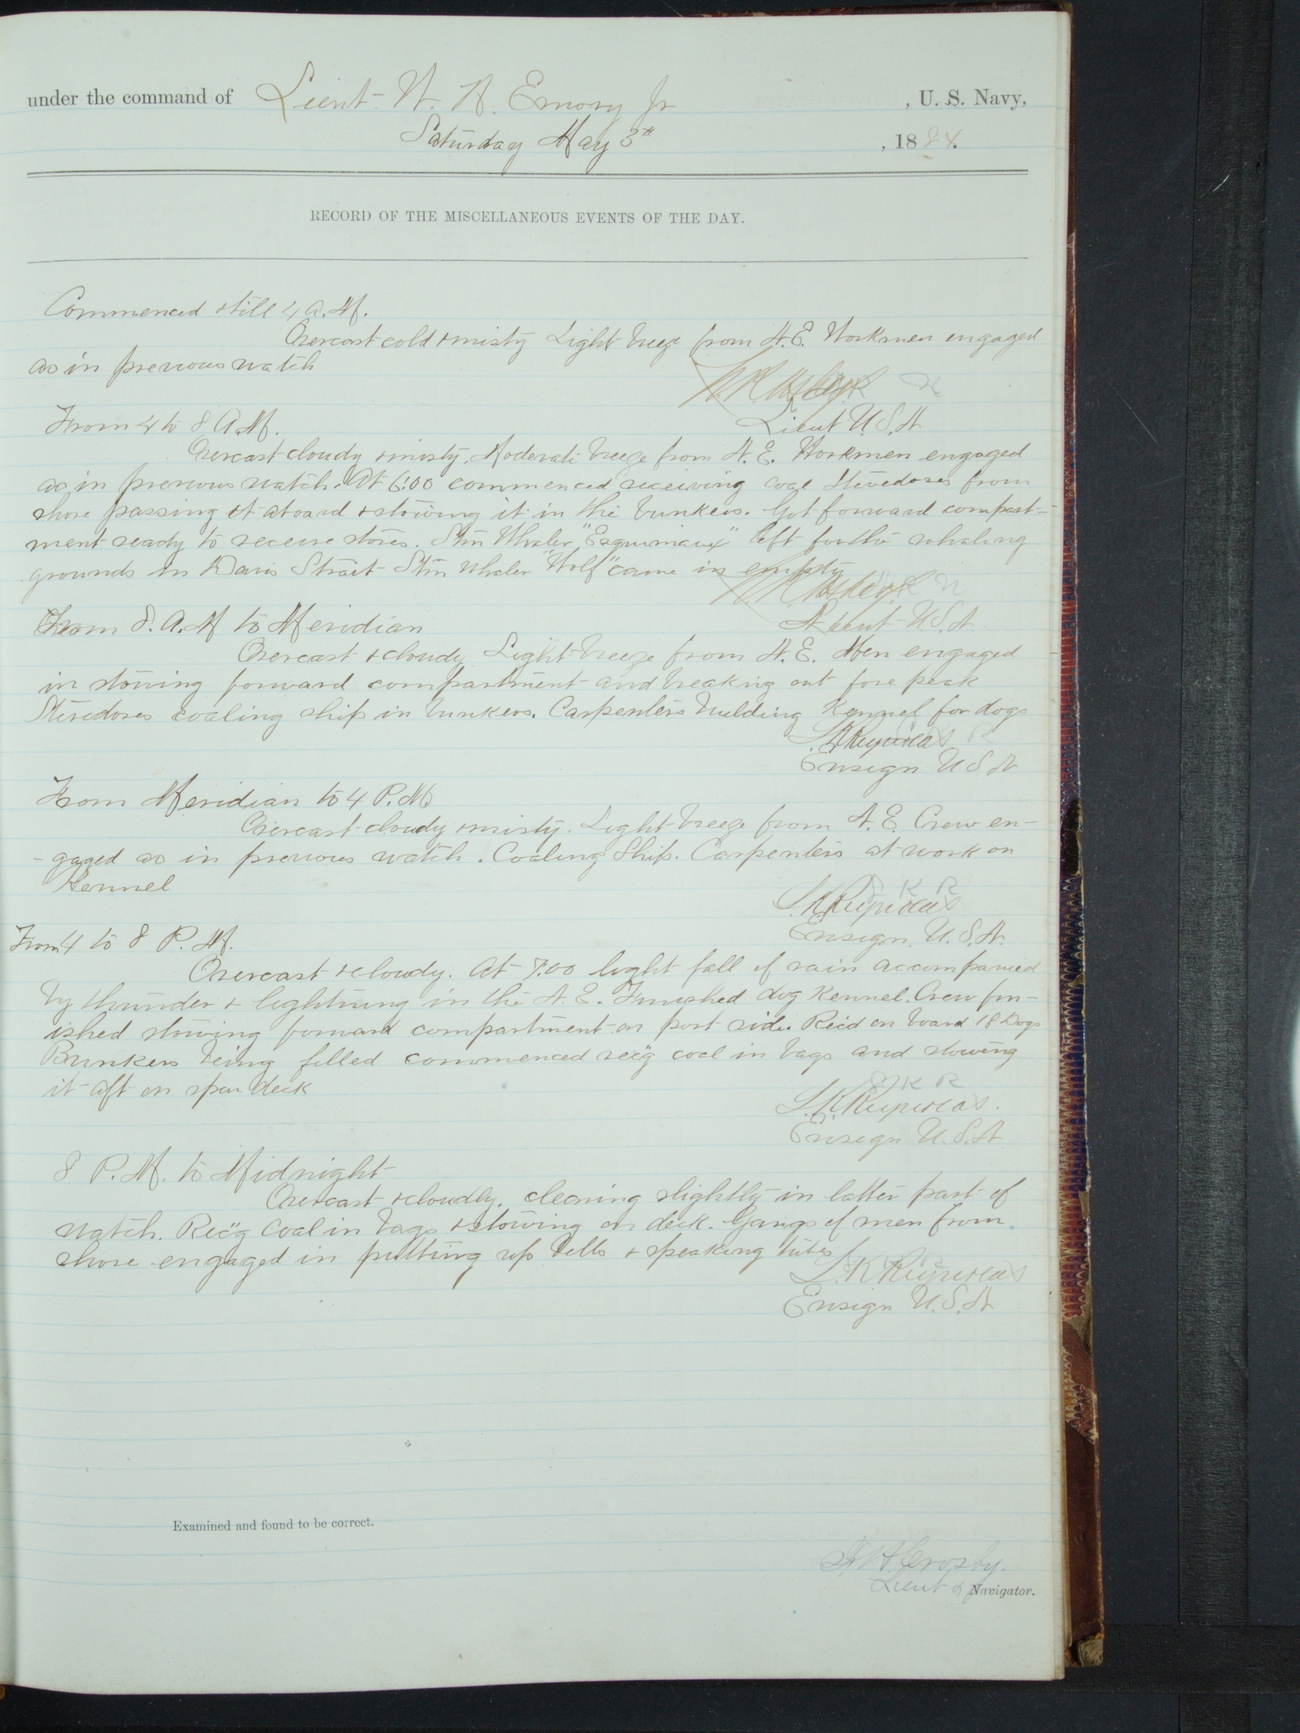 under the command of Lieut. W. H. Emory Jr , U. S. Navy,
Saturday May 3rd , 1884.
RECORD OF THE MISCELLANEOUS EVENTS OF THE DAY.
Commenced & till 4 A.M.
Overcast cold & misty Light breeze from N.E. Workmen engaged
as in previous watch
Lieut U.S.N.
From 4 to 8 A.M.
Overcast cloudy & misty. Moderate breeze from N.E. Workmen engaged
as in previous watch. At 6:00 commenced receiving coal Stevedores from
shore passing it aboard & stowing it in the bunkers. Got forward compart-
ment ready to receive stores. Stm Whaler "Esquimaux" left for the whaling
grounds in Davis Strait Stm Whaler "Wolf" came in empty
Lieut U.S.N.
From 8. A.M to Meridian
Overcast & cloudy Light breeze from N.E. Men engaged
in stowing forward compartment and breaking out fore peak
Stevedores coaling ship in bunkers. Carpenters building Kennel for dogs
Ensign U S N
From Meridian to 4 P.M.
Overcast cloudy & misty. Light breeze from N.E. Crew en-
-gaged as in previous watch. Coaling Ship. Carpenters at work on
Kennel
Ensign. U.S.N.
From 4 to 8 P.M.
Overcast & cloudy. At 7:00 light fall of rain accompanied
by thunder & lightning in the N.E. Finished dog Kennel. Crew fin-
ished stowing forward compartment on port side. Rec'd on board 18 Dogs
Bunkers being filled commenced rec'g coal in bags and stowing
it aft on spar deck
S K R
Ensign U.S.N
8 P.M. to Midnight
Overcast & cloudly, clearing slightly in latter part of
watch. Rec'g Coal in bags & stowing on deck. Gangs of men from
shore engaged in putting up bells & speaking tubes
Ensign U.S.N
Examined and found to be correct.
Crosby.
Lieut & Navigator.